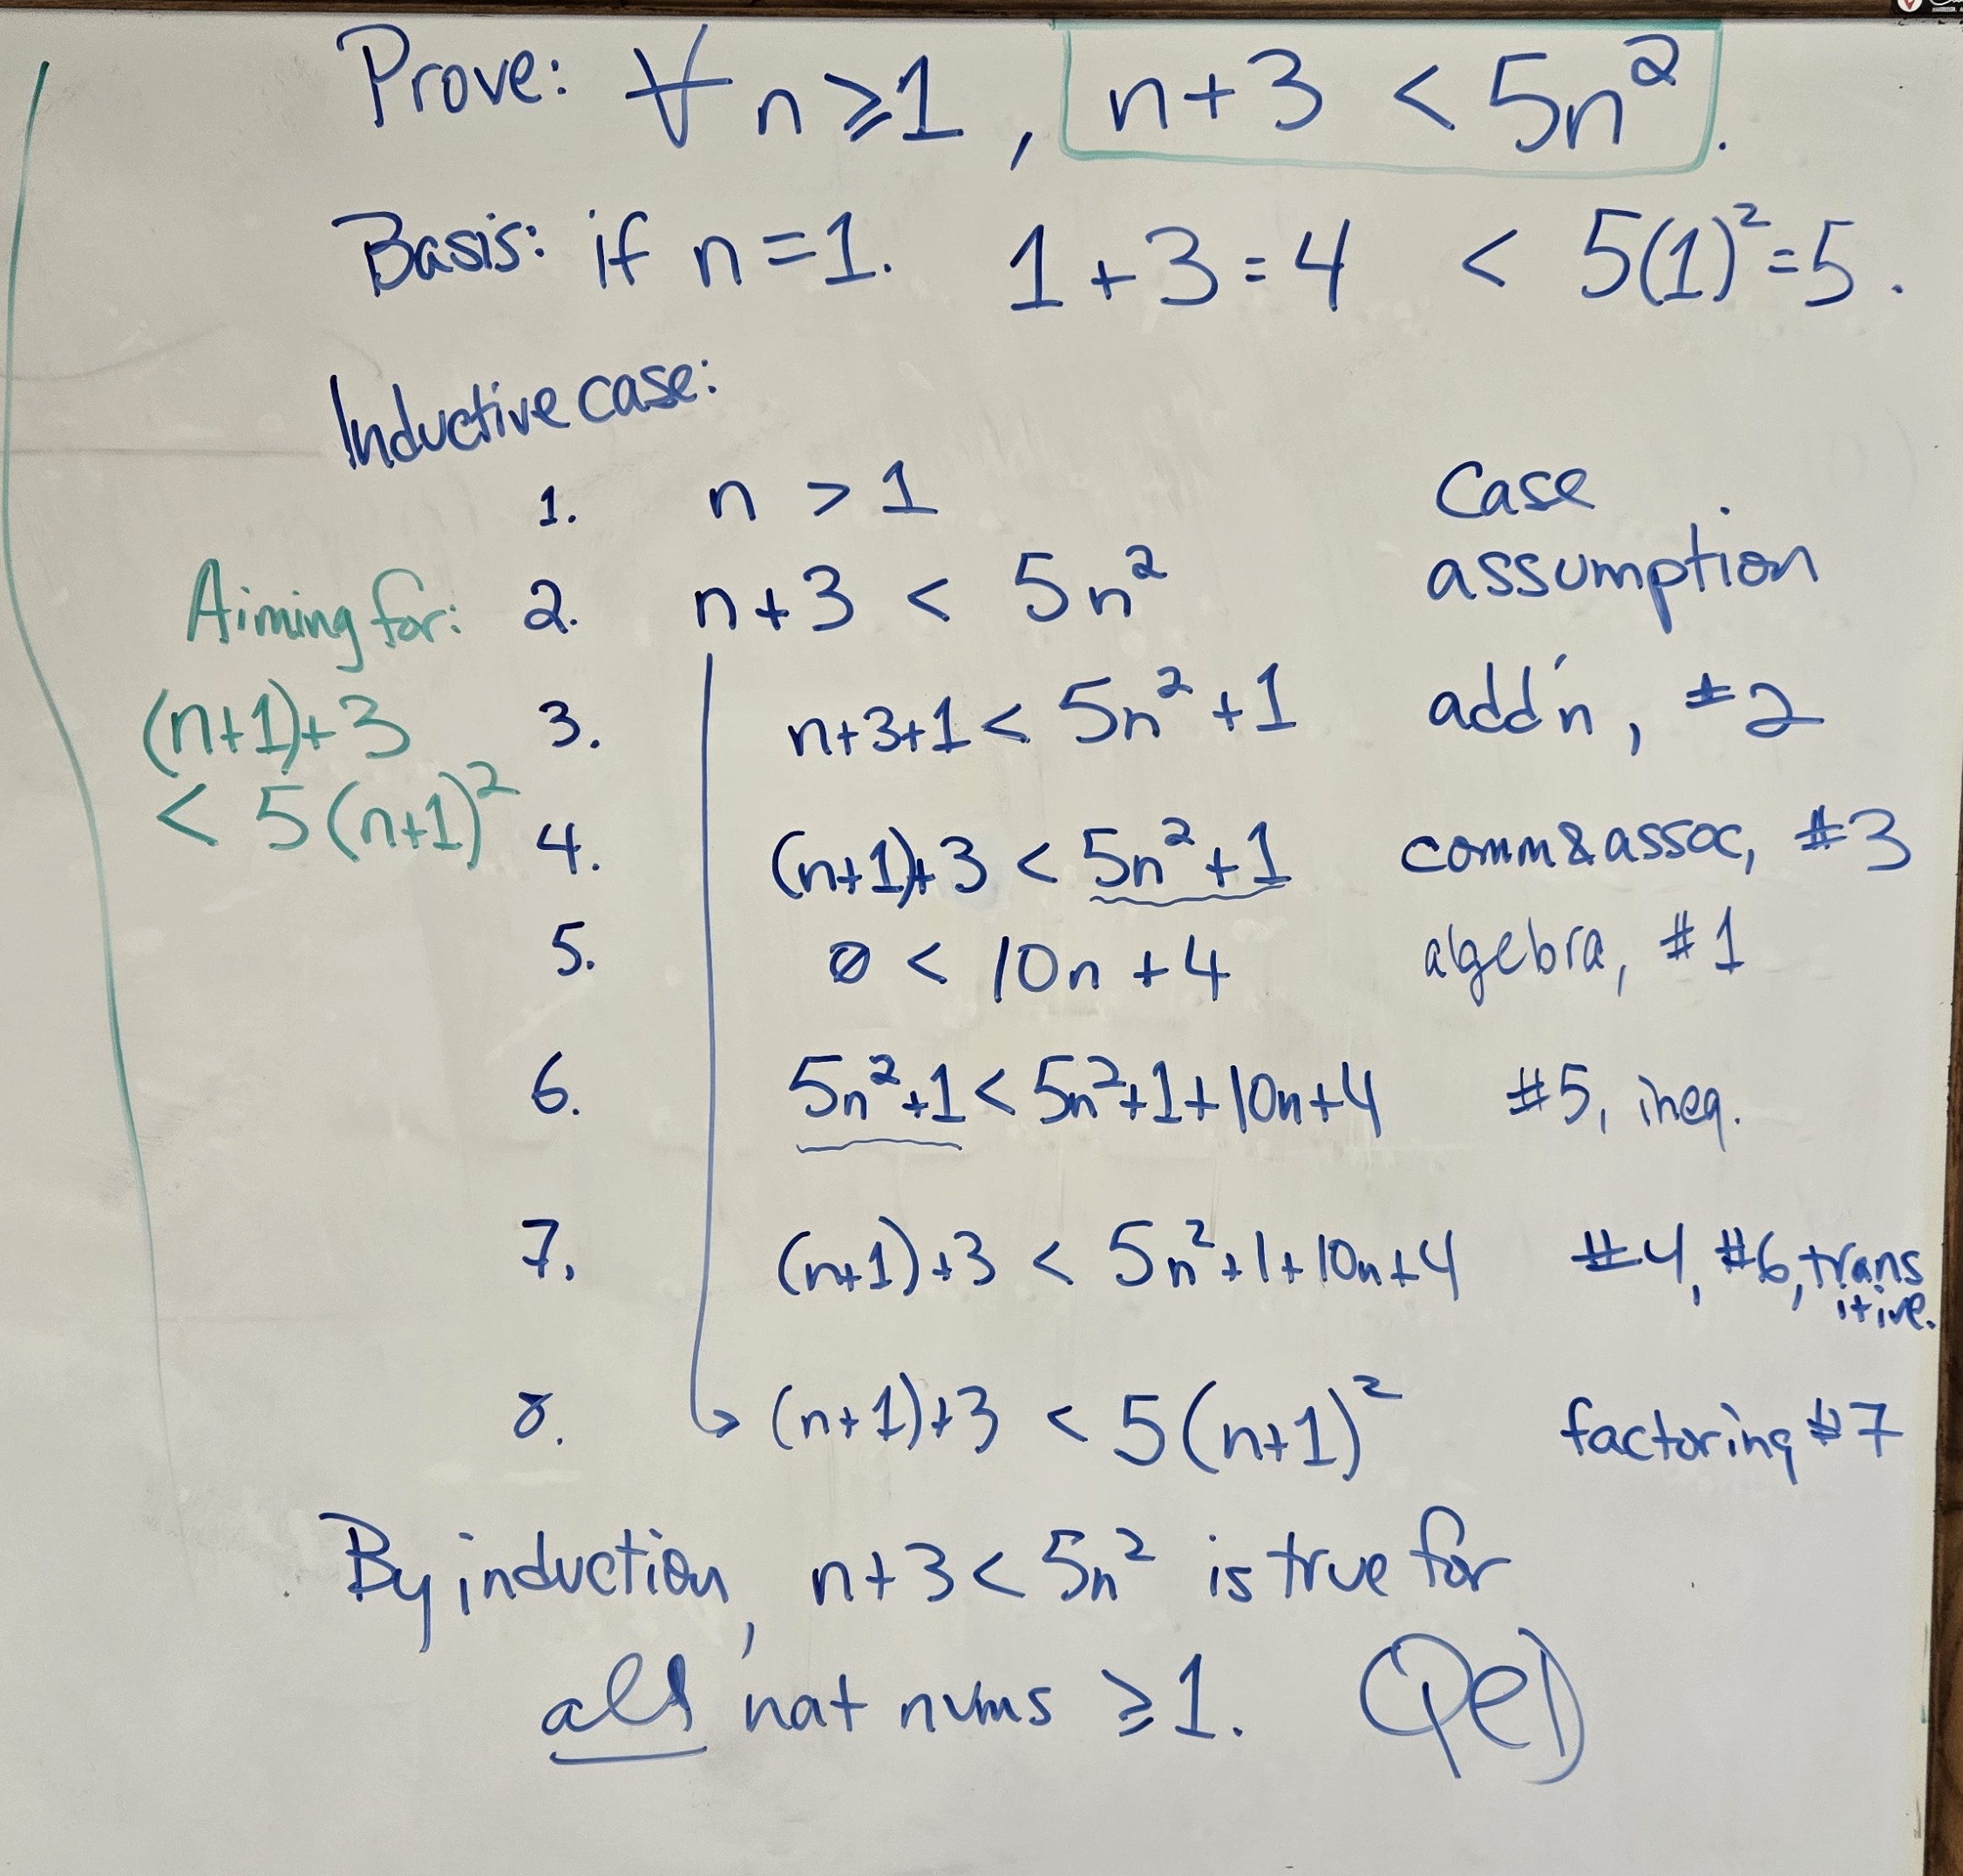 Prove: ∀ n ≥ 1, n+3 < 5n².
Basis: if n=1. 1+3=4 < 5(1)²=5.
Inductive case:
1. n > 1 Case
Aiming for: 2. n+3 < 5n² assumption
(n+1)+3 3. n+3+1 < 5n²+1 add'n, #2
< 5(n+1)² 4. (n+1)+3 < 5n²+1 comm&assoc, #3
5. 0 < 10n+4 algebra, #1
6. 5n²+1 < 5n²+1+10n+4 #5, ineq.
7. (n+1)+3 < 5n²+1+10n+4 #4, #6, trans
itive.
8. (n+1)+3 < 5(n+1)² factoring #7
By induction, n+3 < 5n² is true for
all nat nums ≥ 1. QED